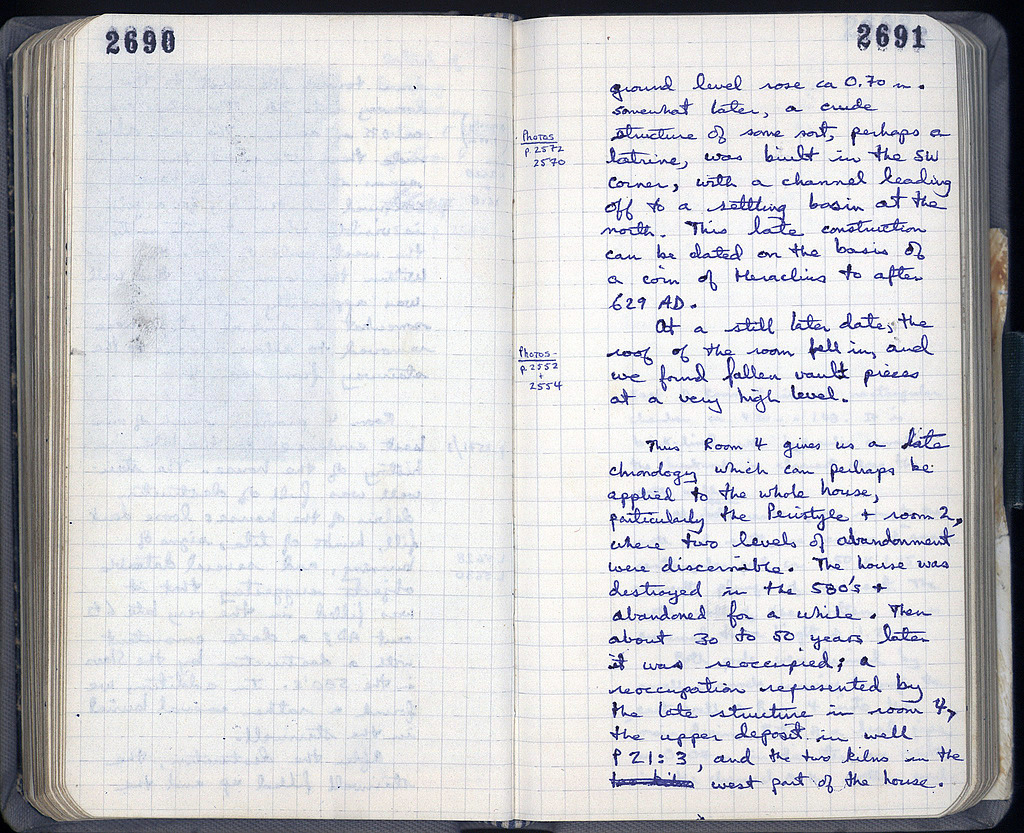 2690
2691
ground level rose ca 0.70 m.
somewhat later, a crude
structure of some sort, perhaps a
latrine, was built in the SW
corner, with a channel leading
off to a settling basin at the
north. This late construction
can be dated on the basis of
a coin of Heraclius to after
629 AD.
At a still later date, the
roof of the room fell in, and
we found fallen vault pieces
at a very high level.
Thus Room 4 gives us a late
chronology which can perhaps be
applied to the whole house,
particularly the Peristyle + room 2,
where two levels of abandonment
were discernible. The house was
destroyed in the 580's +
abandoned for a while. Then
about 30 to 50 years later
it was reoccupied; a
reoccupation represented by
the late structure in room 4,
the upper deposit in well
P 21:3, and the two kilns in the
west part of the house.
Photos
p. 2572
2570
Photos
p. 2552
+
2554